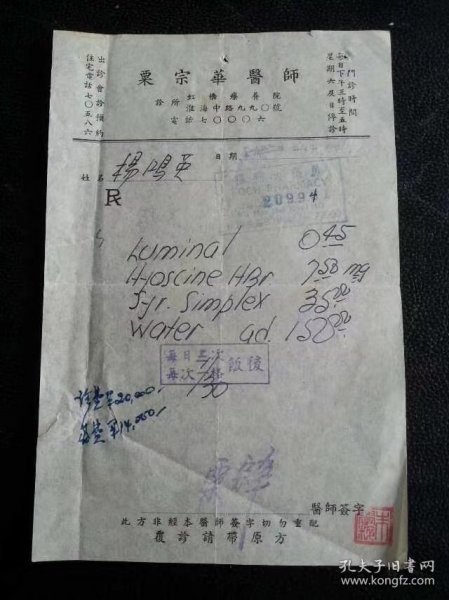 粟宗華醫師
診所 虹橋療養院
淮海中路九九〇號
電話七〇〇〇六
門診時間
每日下午三時至五時
星期六及日停診
出診會診預約
住宅電話七〇五八六
日期
姓名 楊陽
20994
R
Luminal 0.45
Hyoscine HBr 7.50 mg
Syr. Simplex 35.00
Water ad. 150.00
每日三次
每次一格
飯後
醫師簽字
此方非經本醫師簽字切勿重配
覆診請帶原方
孔夫子旧书网
www.kongfz.com